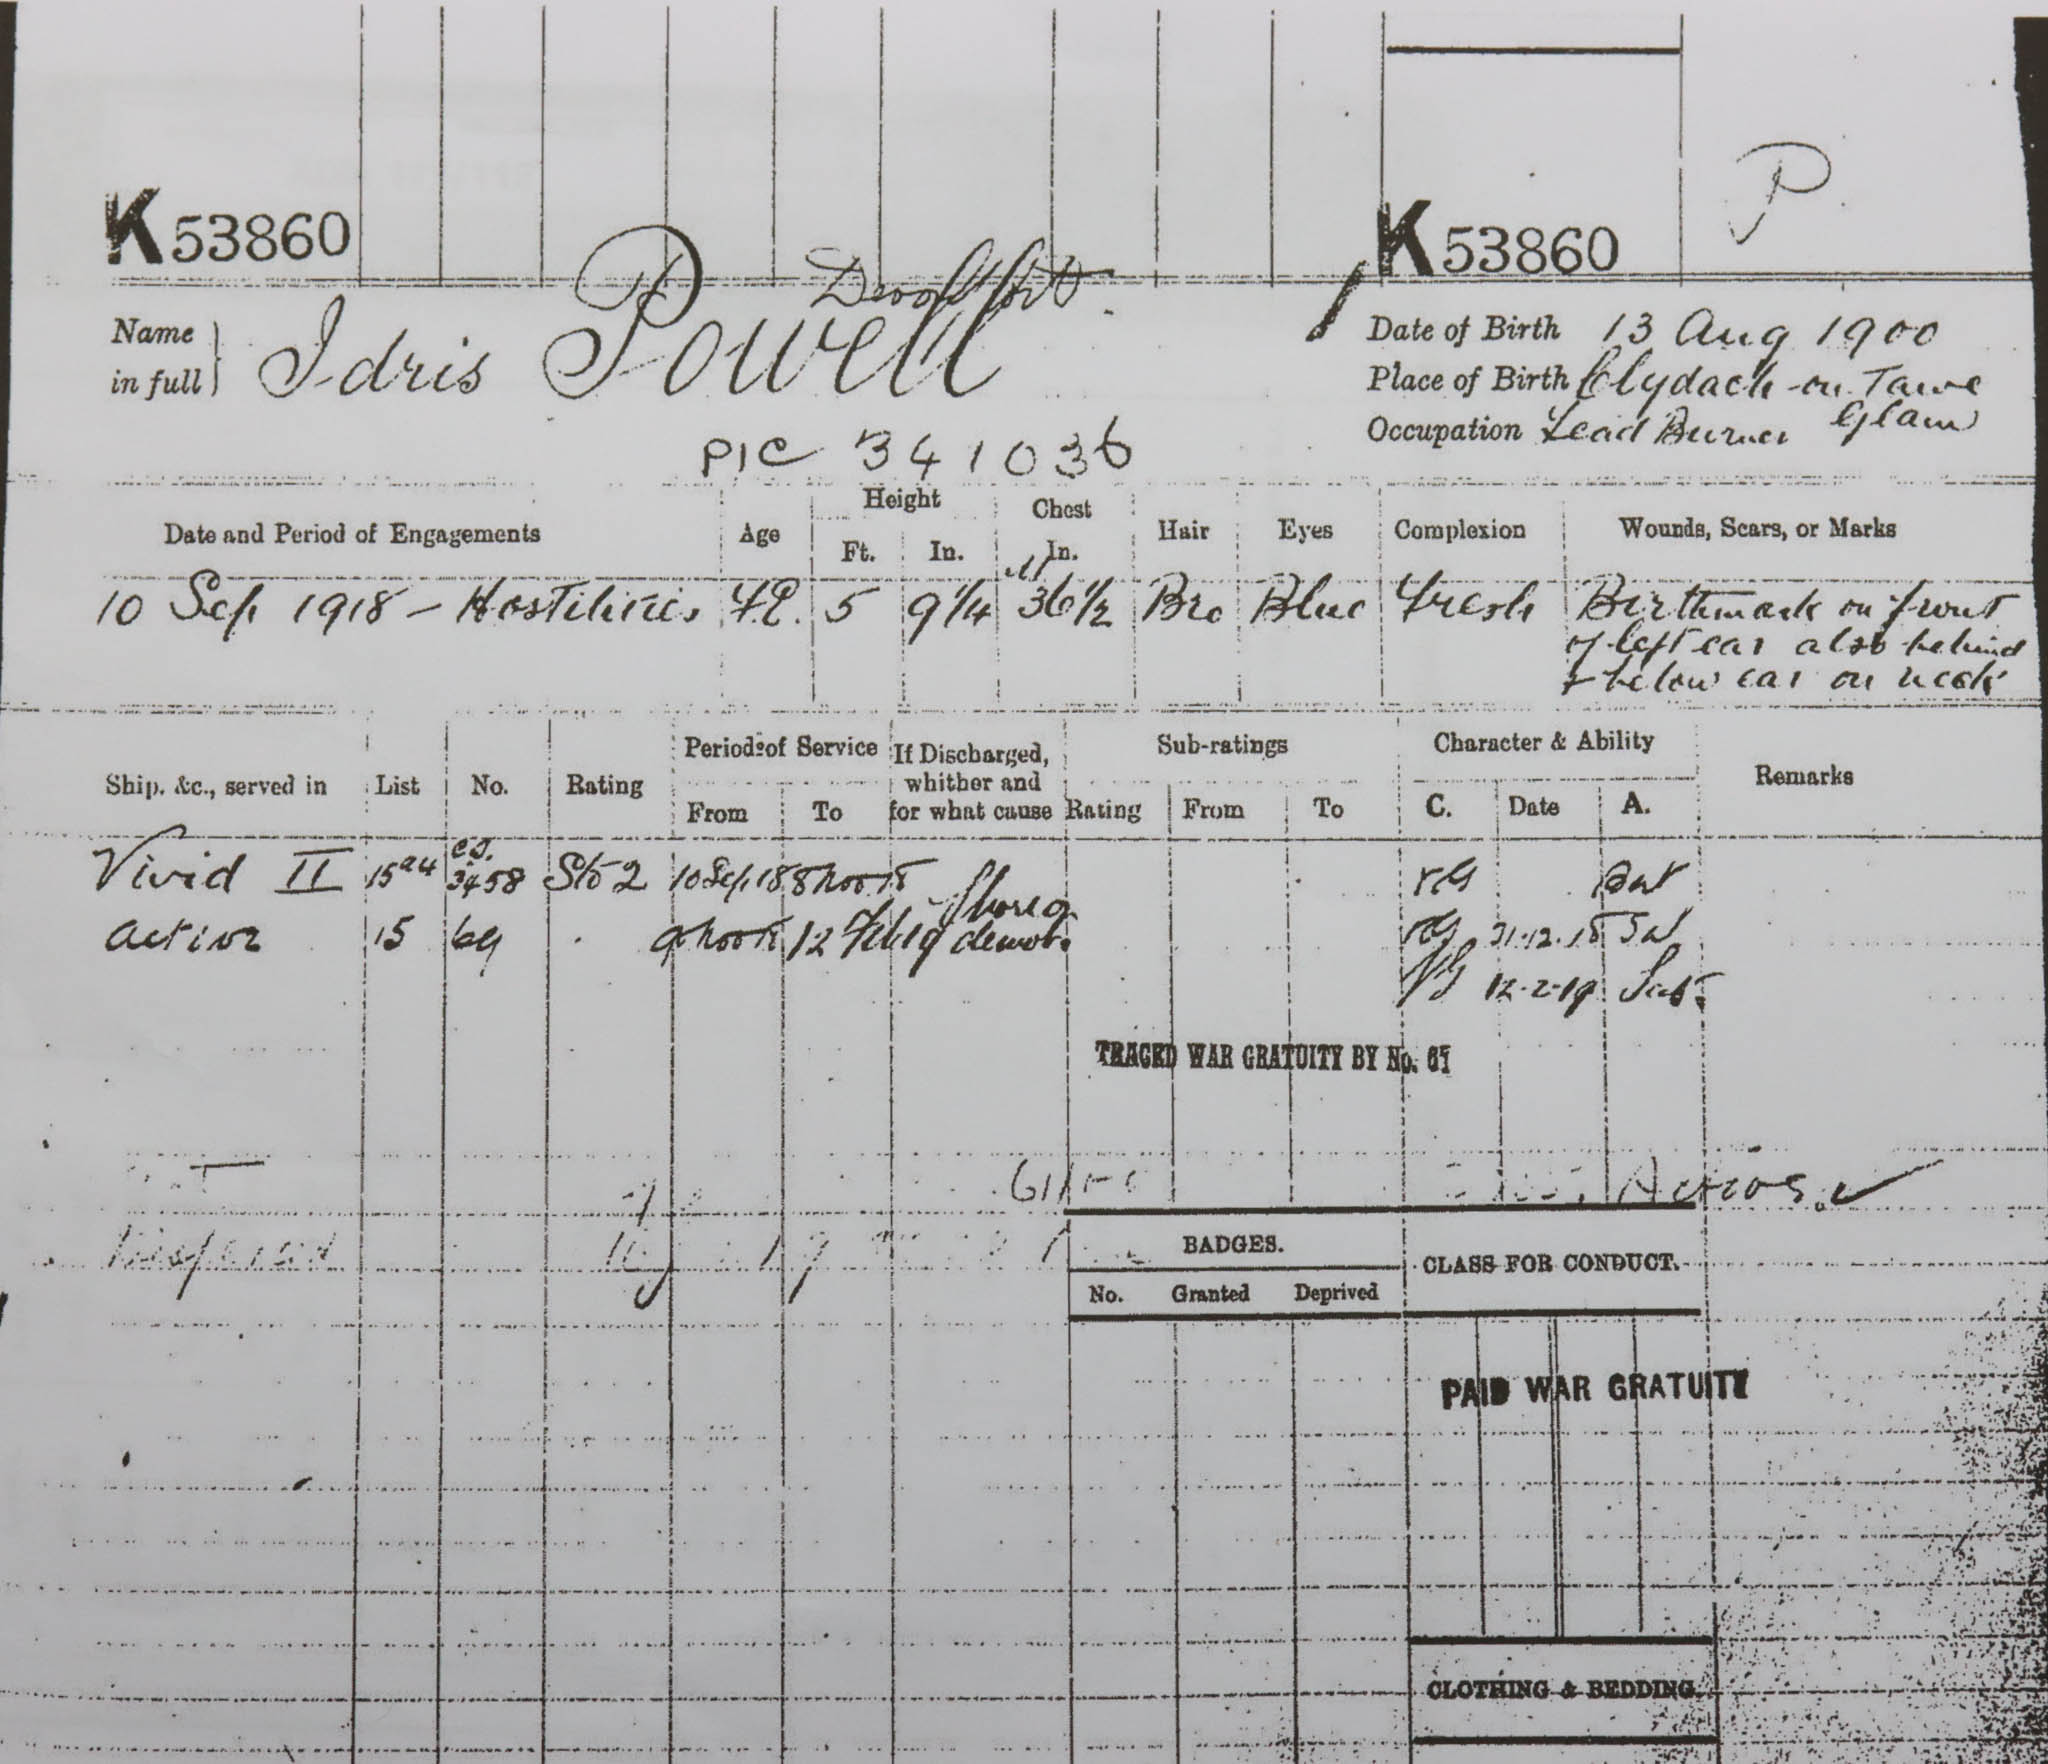 P
K 53860
K 53860
Devonport
Name in full } Idris Powell
Date of Birth 13 Aug 1900
Place of Birth Clydach-on Tawe
Glam
Occupation Lead Burner
P/C 341036
Date and Period of Engagements Age Height Ft. In. Chest In. Hair Eyes Complexion Wounds, Scars, or Marks
10 Sep 1918 - Hostilities 5 9 1/4 36 1/2 Bro Blue Fresh Birthmark on front
of left ear also behind
+ below ear on neck
Ship. &c., served in List No. Rating Periods of Service From To If Discharged, whither and for what cause Sub-ratings Rating From To Character & Ability C. Date A. Remarks
Vivid II 15a4 3458 Sto 2 10 Sep 18 8 Nov 18 VG
Active 15 69 9 Nov 18 12 Feb 19 Shore demob. VG 31.12.18
VG 12.2.19 Sat.
TRACED WAR GRATUITY BY No. 61
BADGES.
No. Granted Deprived
CLASS FOR CONDUCT.
PAID WAR GRATUITY
CLOTHING & BEDDING.